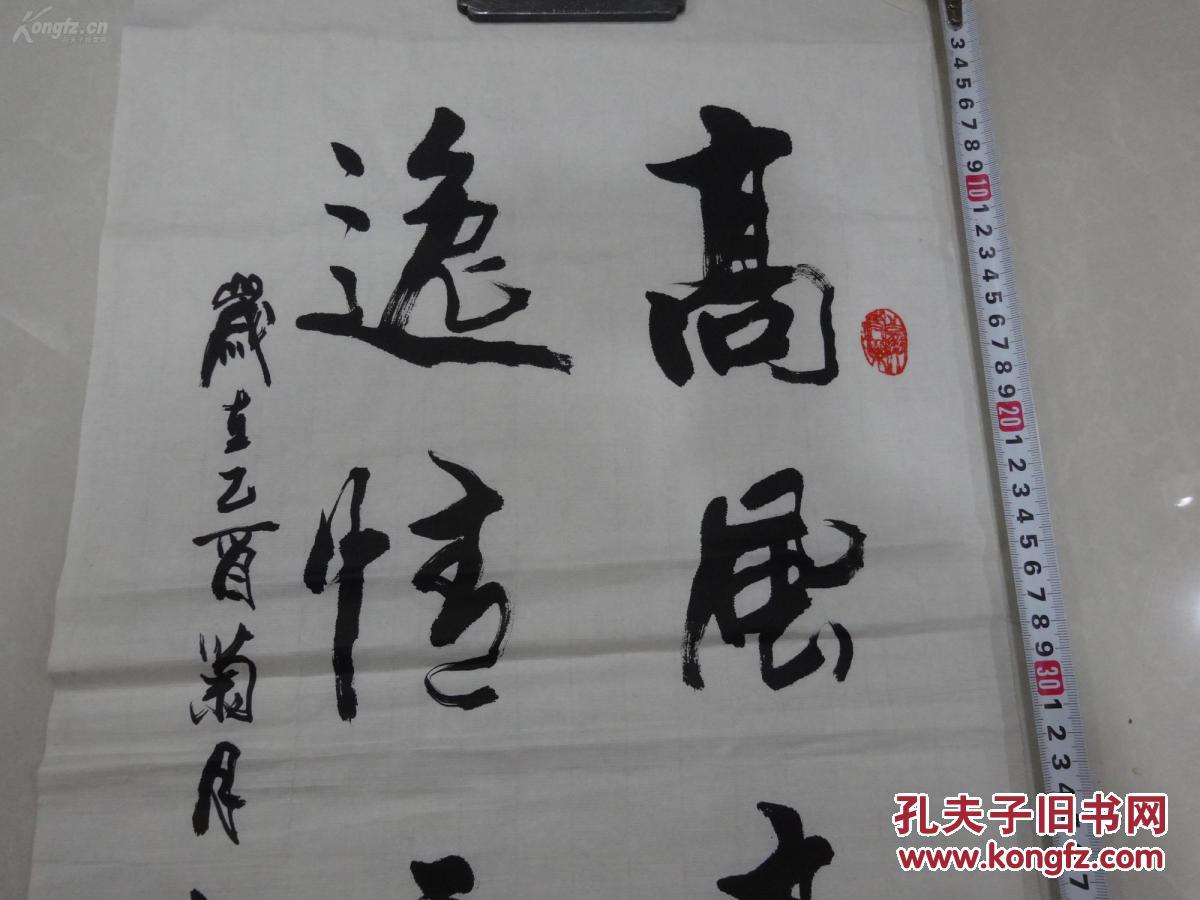 高風
逸情
歲在乙酉菊月
Kongfz.cn
孔夫子旧书网
www.kongfz.com
3 4 5 6 7 8 9 10 1 2 3 4 5 6 7 8 9 20 1 2 3 4 5 6 7 8 9 30 1 2 3 4
7